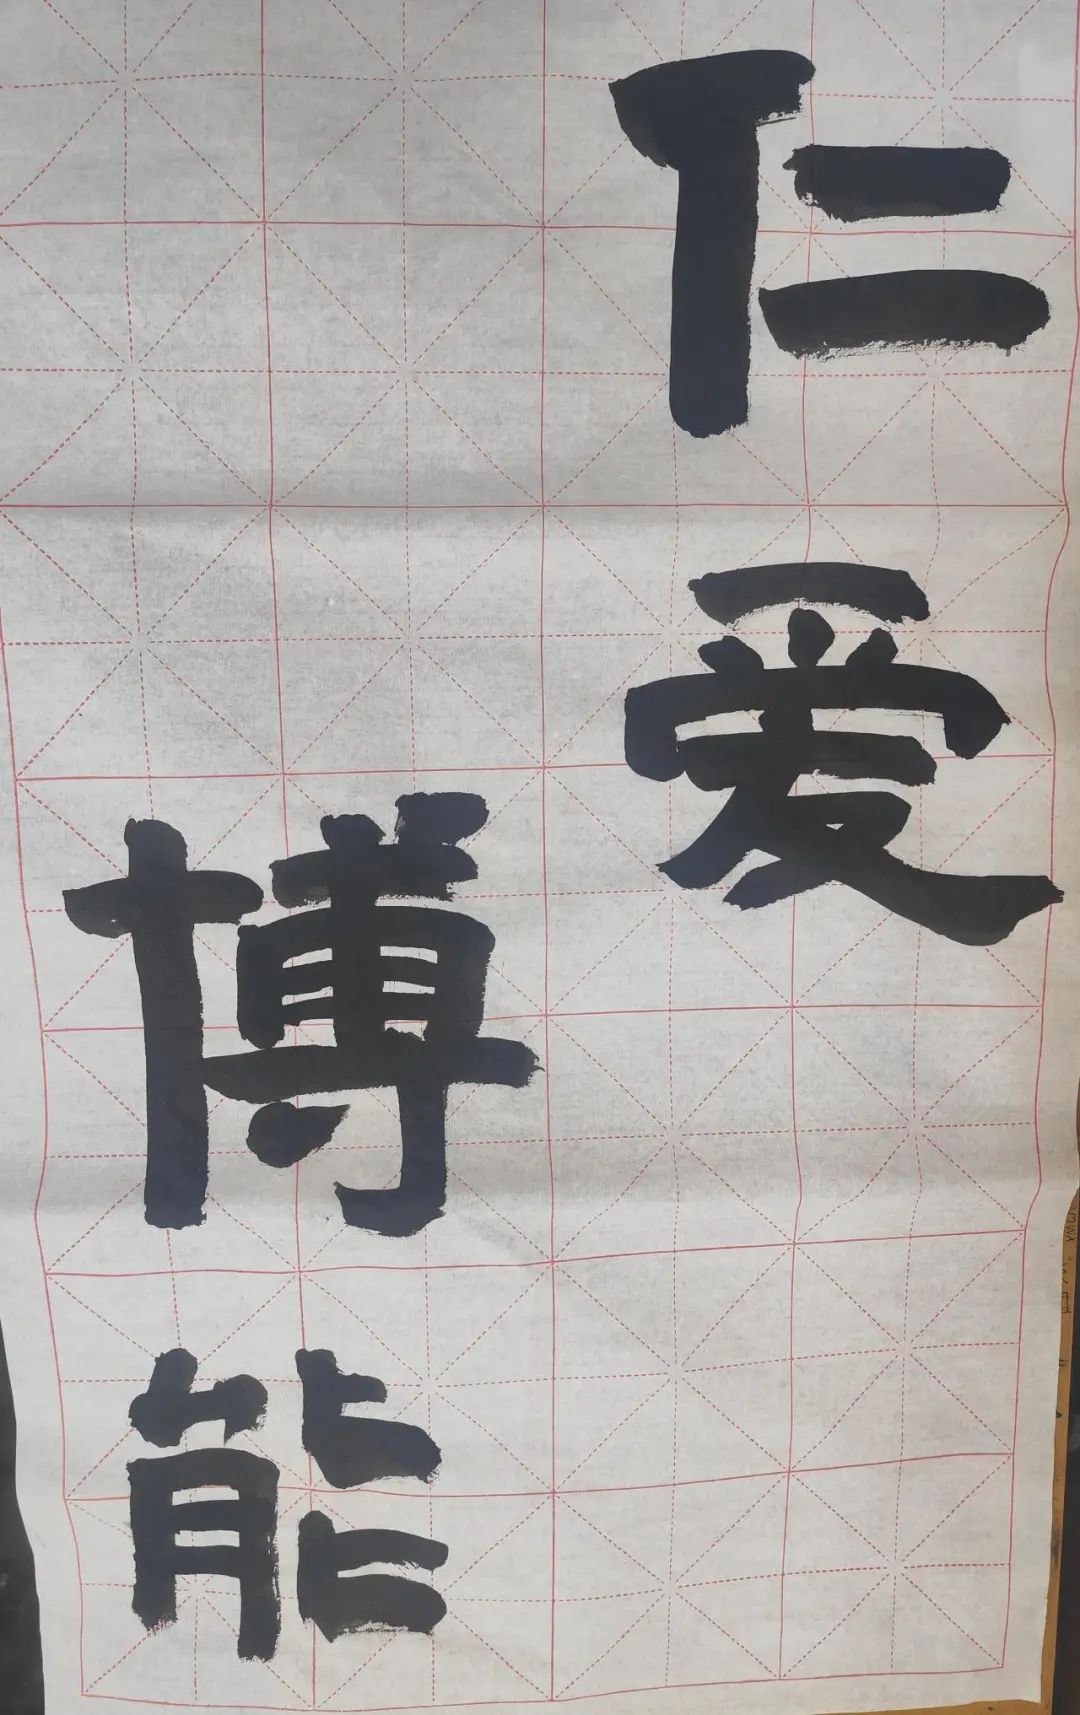 仁爱
博能